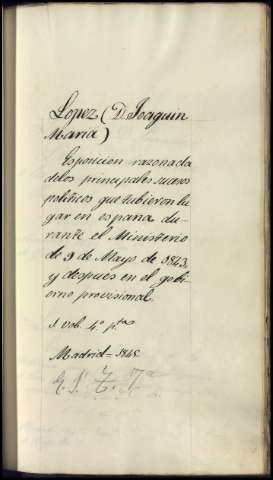 Lopez (D. Joaquin
Maria)
Esposicion razonada
delos principales sucesos
politicos que tubieron lu
gar en españa du-
rante el Ministerio
de 9 de Mayo de 1843,
y despues en el gobi-
erno provisional.
1 vol. 4º ptª
Madrid = 1845.